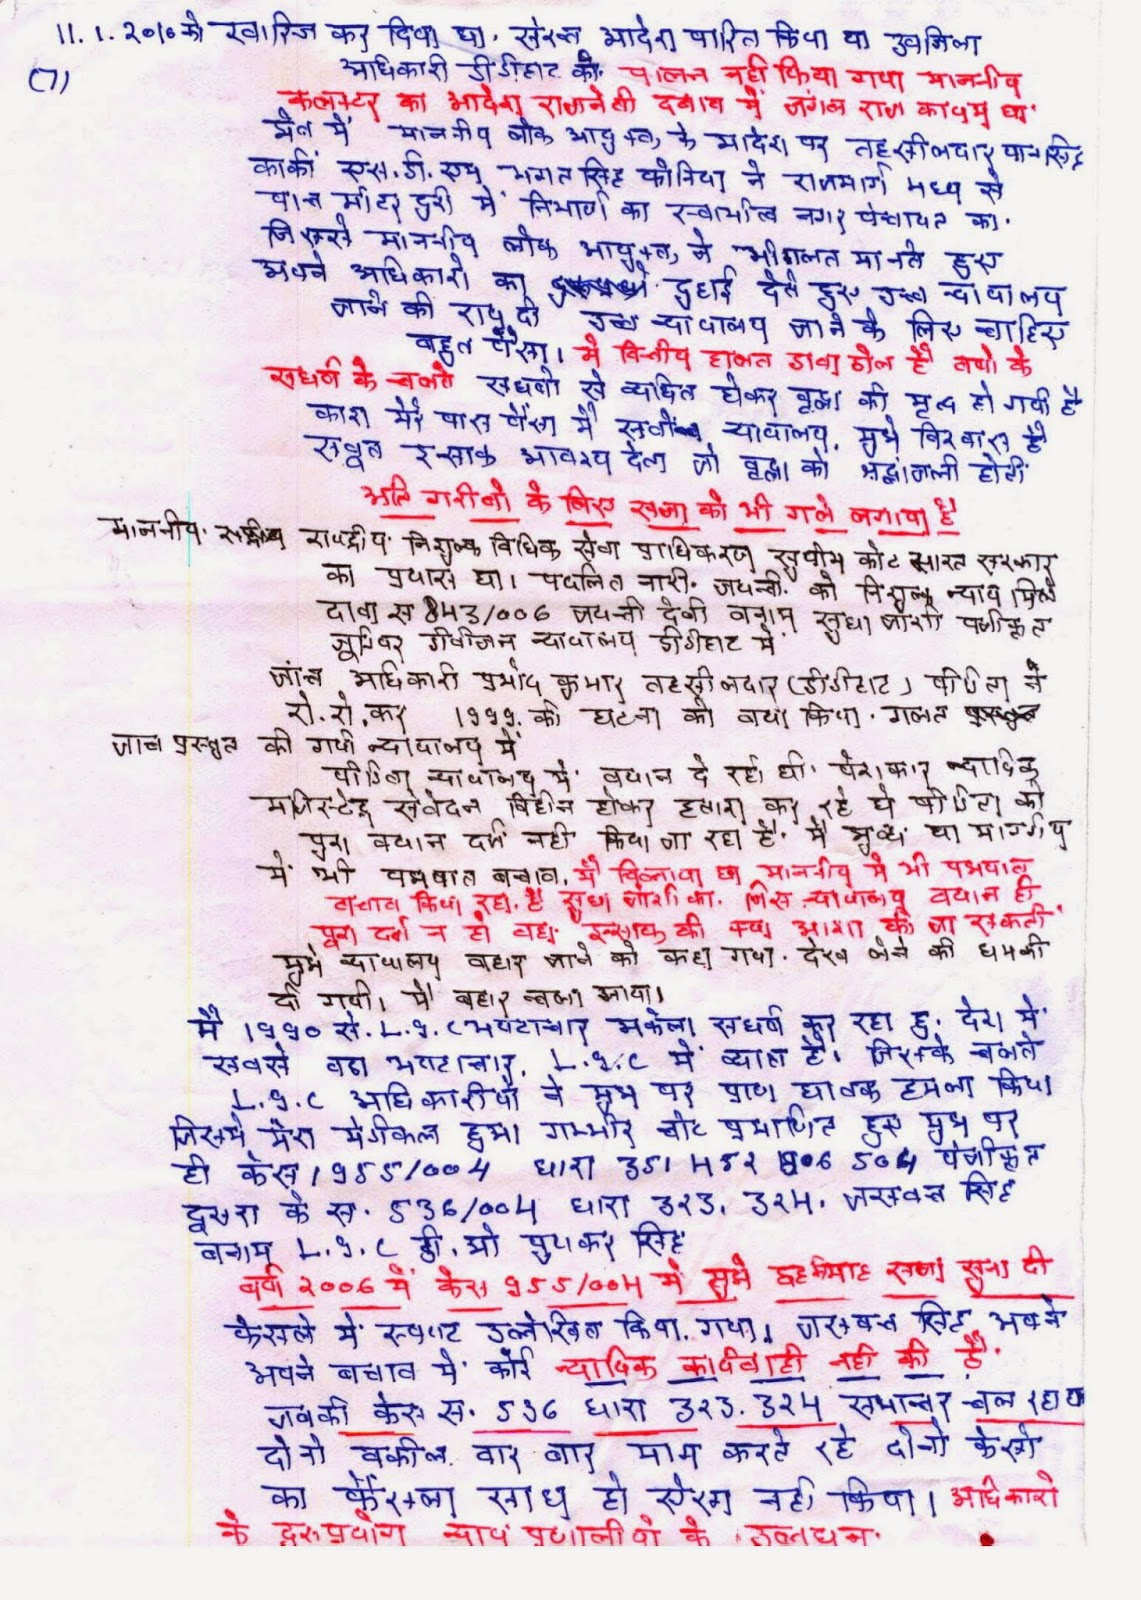 11.1.2010 को खारिज कर दिया था. सख्त आदेश पारित किया था उपजिला
(7)
अधिकारी डीडीहाट को. पालन नहीं किया गया माननीय
कलक्टर का आदेश राजनेती दवाव में जंगल राज कायम था.
अन्त में माननीय लोक आयुक्त, के आदेश पर तहसीलदार पानसिह
कार्की एस.डी.एम भगत सिह फोनिया ने राजमार्ग मध्य से
पांच मीटर दुरी में निर्माण का स्वामीत्व नगर पंचायत का.
जिससे माननीय लोक आयुक्त, ने भी गलत मानते हुए
अपने अधिकारो का दुहाई देते हुए उच्च न्यायालय
जाने की राय दी उच्च न्यायालय जाने के लिए चाहिए
बहुत पैसा। मे वित्तीय हालत डावा डोल है वर्षो के
सघर्ष के चलते सघर्षो से व्यथित होकर वृद्धा की मृत्यु हो गयी है
काश मेरे पास पैसा मै सर्वोच्च न्यायालय, मुझे विश्वास है
सबूत इन्साफ अवश्य देता जो वृद्धा को श्रद्धांजली होती
अति गरीबो के लिए सजा को भी गले लगाया है
माननीय. राष्ट्रीय निशुल्क विधिक सेवा प्राधिकरण सुप्रीम कोट भारत सरकार
का प्रयास था। पददलित नारी. जयन्ती. को निशुल्क न्याय मिले
दावा स 843/006 जयन्ती देवी बनाम सुधा जोशी पंजीकृत
जूनियर डीवीजन न्यायालय डीडीहाट में
जांच अधिकारी प्रमोद कुमार तहसीलदार (डीडीहाट) पीडिता ने
रो.रो.कर 1999. की घटना को बया किया. गलत
जाच प्रस्तुत की गयी न्यायालय में
पीडिता न्यायालय में बयान दे रही थी. पेशकार न्यायिक
मजिस्टेट्र संवेदन विहीन होकर इशारा कर रहे थे पीडिता को
पुरा बयान दर्ज नही किया जा रहा है. मै
में भी पक्षपात बचाव. मै चिल्लाया था माननीय मे भी पक्षपात
बचाव किया रहा. है सुधा जोशी का. जिस न्यायालय बयान ही
पूरा दर्ज न हो वहा इन्साफ की क्या आशा की जा सकती.
मुझे न्यायालय बहार जाने को कहा गया. देख लेने की धमकी
दी गयी। मै बहार चला आया।
मै 1990 से. L.I.C भ्रष्टाचार अकेला सघर्ष कर रहा हु. देश मे
सबसे बडा भ्रष्टाचार, L.I.C में व्याप्त है। जिसके चलते
L.I.C अधिकारीयो ने मुझ पर प्राण घातक हमला किया
जिसमे मेरा मेडीकल हुआ गम्भीर चोट प्रमाणित हुए मुझ पर
ही केस 1955/004 धारा 351 452 506 504 पंजीकृत
दूसरा के स. 536/004 धारा 323, 324. जसवन्त सिंह
बनाम L.I.C डी. ओ पुष्कर सिंह
वर्ष 2006 में केस 955/004 में मुझे छहमाह सजा सुना दी
फैसले में स्पष्ट उल्लेखित किया. गया। जसवन्त सिंह अपने
अपने बचाव में कोई न्यायिक कार्यवाही नही की है.
जबकी केस स. 536 धारा 323. 324 समान्तर चल रहा था
दोनो वकील. बार बार माग करते रहे दोनो केसो
का फैसला साथ हो ऐसा नही किया। अधिकारो
के दुरुप्रयोग न्याय प्रणालीयो के उलंघन.